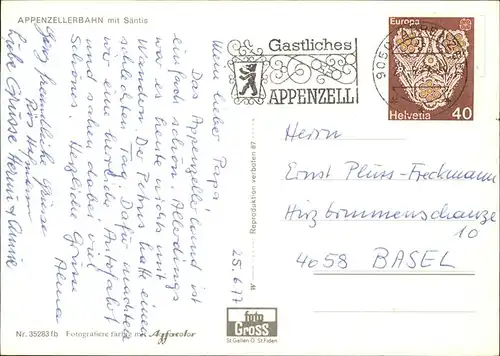 APPENZELLERBAHN mit Säntis
Mein lieber Papa
Das Appenzellerland ist
einfach schön. Allerdings
war es heute nichts mit
Wandern. Der Petrus hatte einen
schlechten Tag. Dafür machten
wir eine herrliche Autofahrt
und sahen dabei viel
Schönes. Herzliche Grüsse
Ganz freundliche Grüsse
Liebe Grüsse
25.6.77
Gastliches
APPENZELL
9050
Europa
Helvetia 40
Herrn
Ernst Pluss-Freckmann
Hirzbrunnenschanze
10
4058 BASEL
Reproduktion verboten 87
foto
Gross
St. Gallen O. St. Fiden
Nr. 35283 fb Fotografiere farbig mit Agfacolor